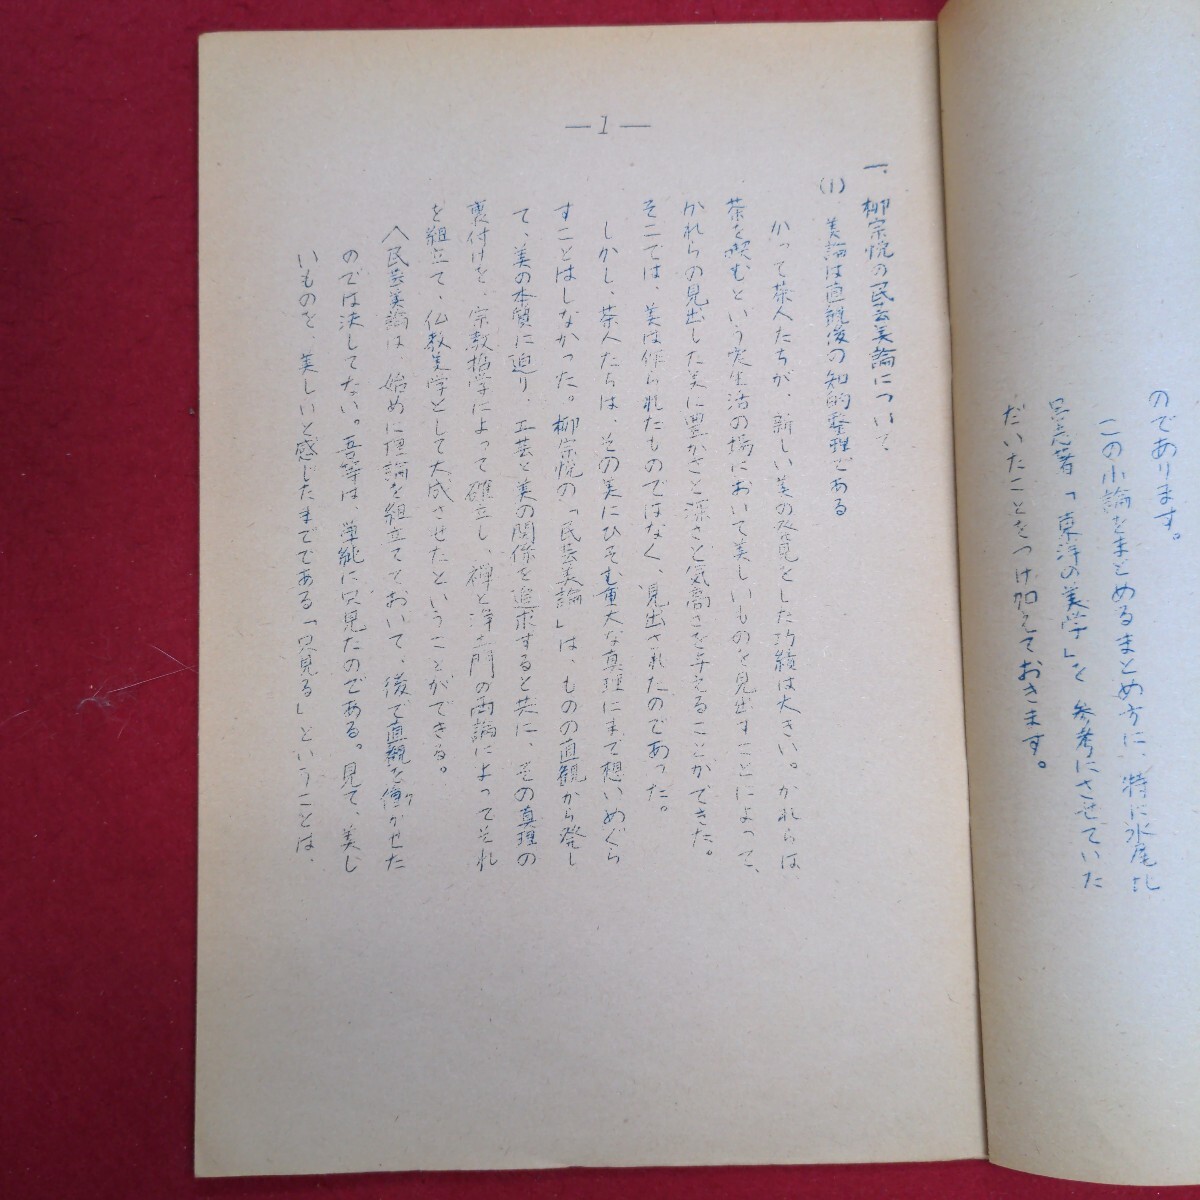 のであります。
この小論をまとめるまとめ方に、特に水尾比
呂志著「東洋の美学」を参考にさせていた
だいたことをつけ加えておきます。
―1―
一、柳宗悦の民芸美論について
(1)、美論は直観後の知的整理である
かって茶人たちが、新しい美の発見をした功績は大きい。かれらは
茶を喫むという実生活の場において美しいものを見出すことによって、
かれらの見出した美に豊かさと深さと気高さを与えることができた。
そこでは、美は作られたものではなく、見出されたのであった。
しかし、茶人たちは、その美にひそむ重大な真理にまで想いめぐら
すことはしなかった。柳宗悦の「民芸美論」は、ものの直観から発し
て、美の本質に迫り、工芸と美の関係を追求すると共に、その真理の
裏付けを、宗教哲学によって確立し、禅と浄土門の両論によってそれ
を組立て、仏教美学として大成させたということができる。
〈民芸美論は、始めに理論を組立てておいて、後で直観を働かせた
のでは決してない。吾等は、単純に只見たのである。見て、美し
いものを、美しいと感じたまでである「只見る」ということは、